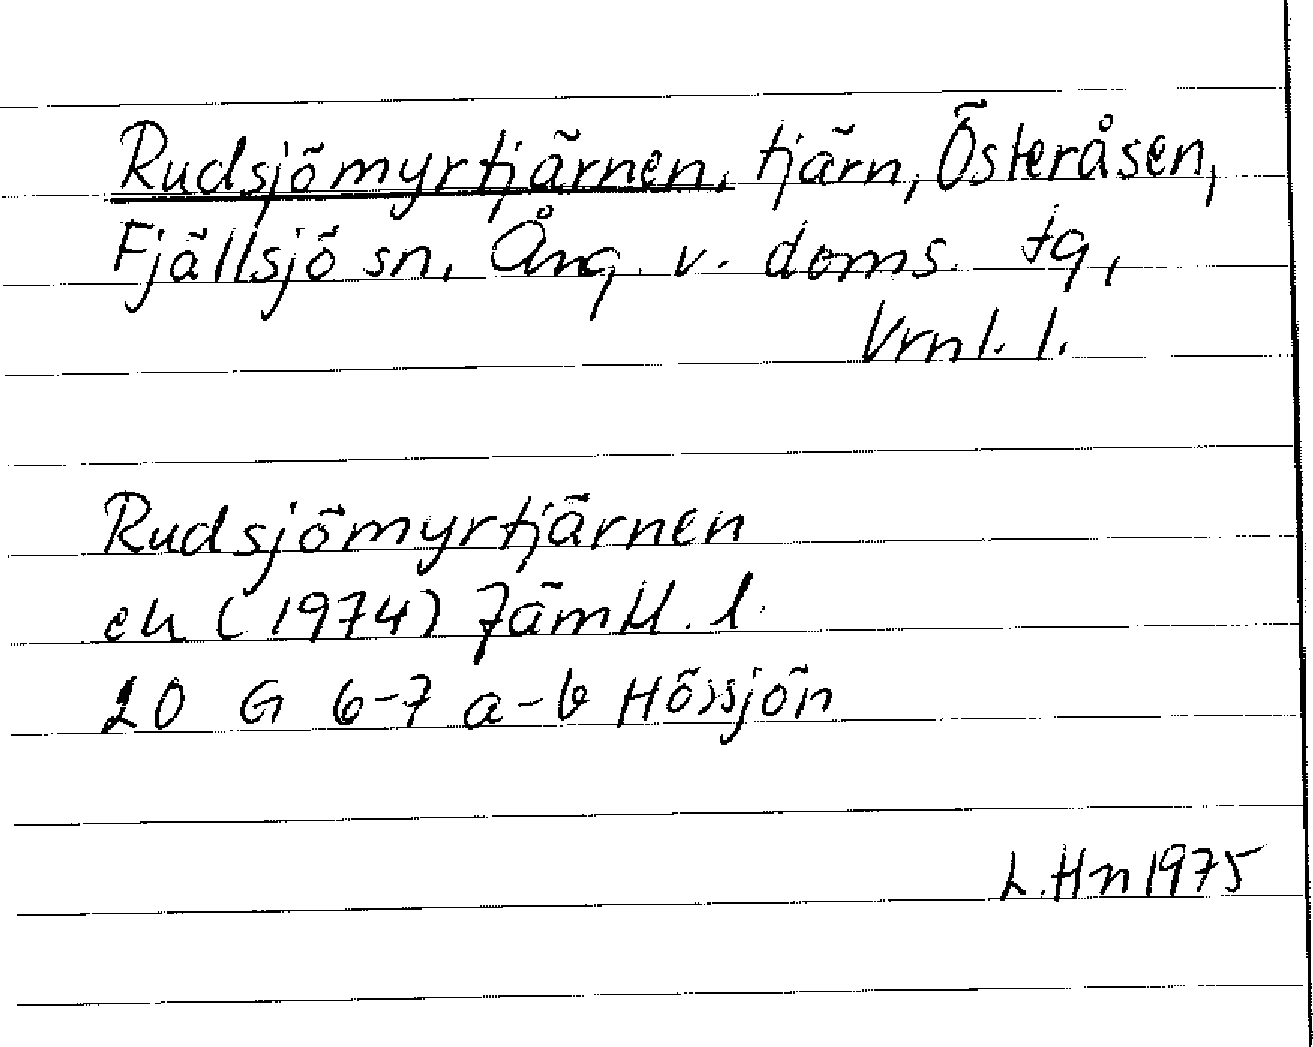 Rudsjömyrtjärnen, tjärn, Österåsen,
Fjällsjö sn, Ång. v. doms. tg,
Vrnl. l.
Rudsjömyrtjärnen
ek (1974) Jämtl. l.
20 G 6-7 a-b Hössjön
L.Hn 1975